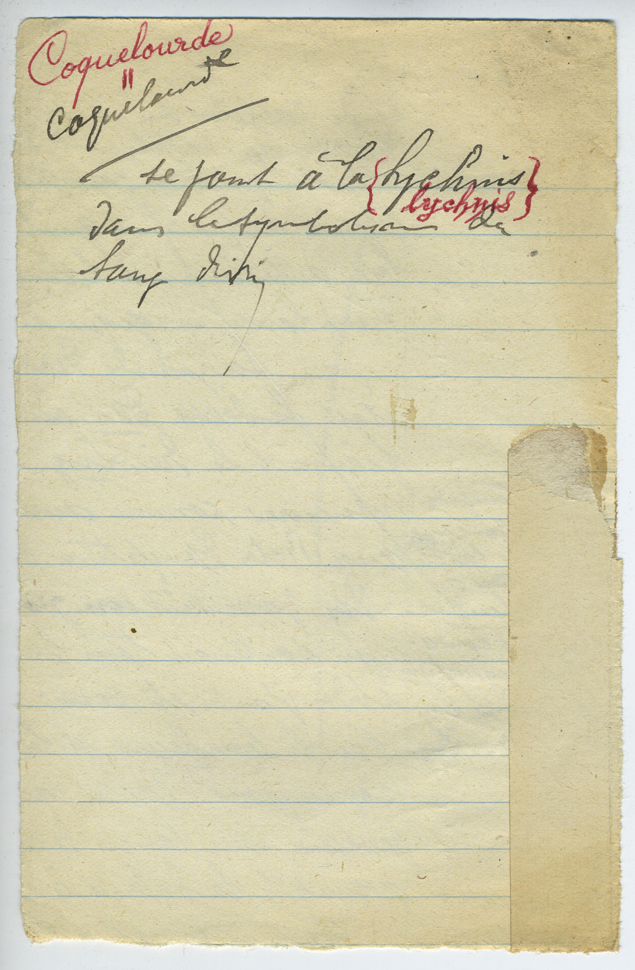 Coquelourde
"
Coquelourde
se joint à la {lychnis
lychnis}
dans le symbolisme du
sang divin